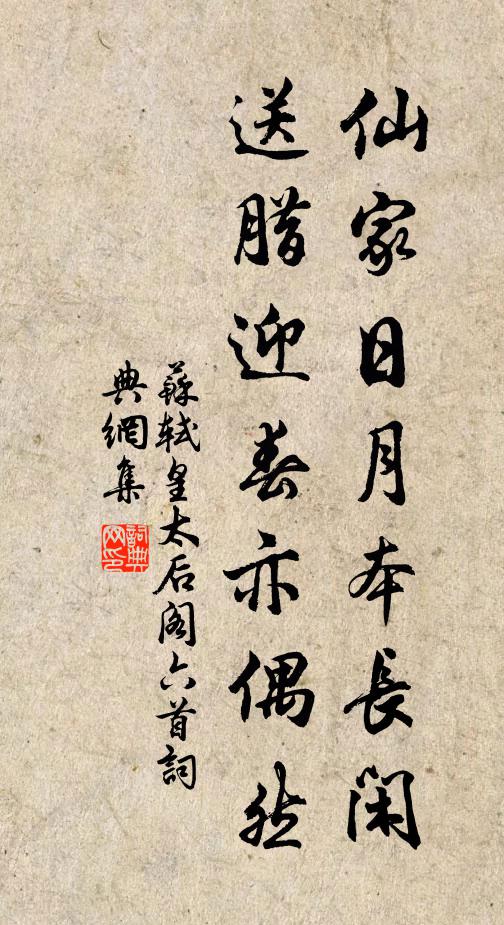 仙家日月本長閑
送腊迎春亦偶然
蘇軾皇太后阁六首詞
典網集
詞典
网印